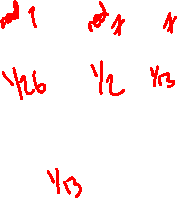 red 1 red X X
1/26 1/2 1/13
1/13